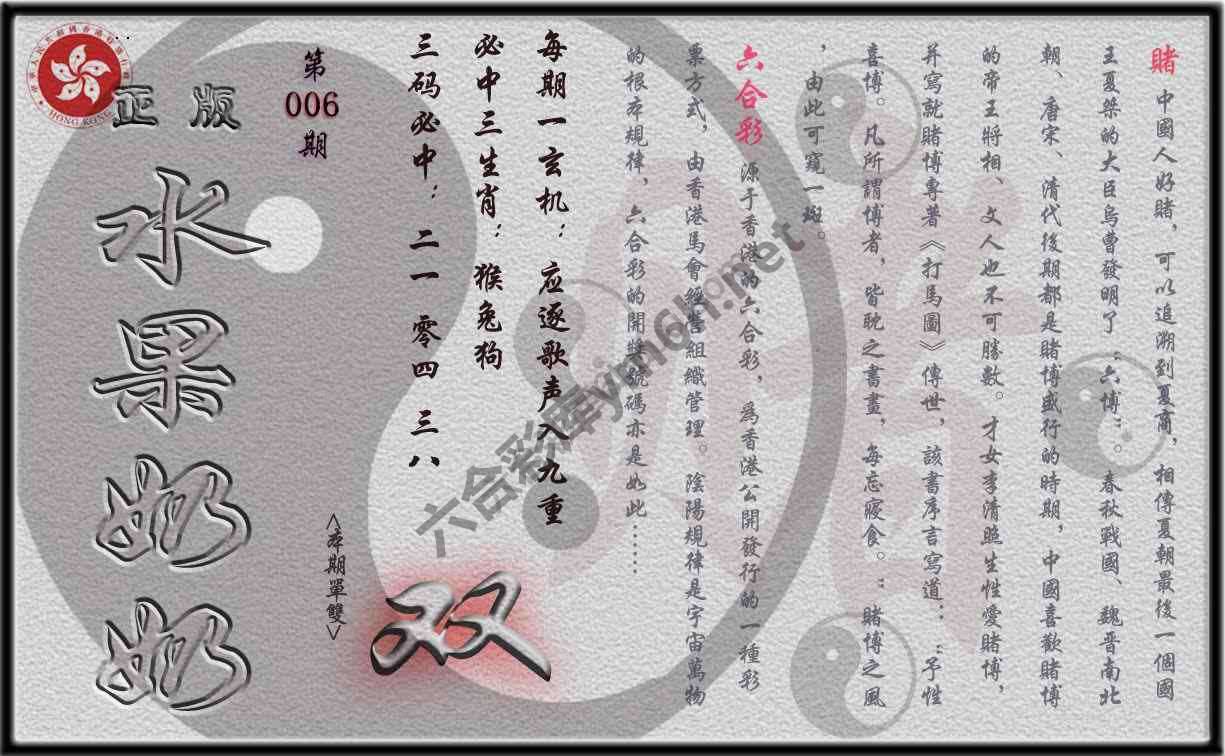 賭 中國人好賭，可以追溯到夏商，相傳夏朝最後一個國
王夏桀的大臣烏曹發明了“六博”。春秋戰國、魏晋南北
朝、唐宋、清代後期都是賭博盛行的時期，中國喜歡賭博
的帝王將相、文人也不可勝數。才女李清照生性愛賭博，
并寫就賭博專著《打馬圖》傳世，該書序言寫道：“予性
喜博。凡所謂博者，皆耽之晝，每忘寢食。”賭博之風
，由此可窺一斑。
六合彩 源于香港的六合彩，爲香港公開發行的一種彩
票方式，由香港馬會經營組織管理。陰陽規律是宇宙萬物
的根本規律，六合彩的開獎號碼亦是如此……
每期一玄机：应逐歌声入九重
必中三生肖：猴兔狗
三码必中：二一 零四 三八
第
006
期
<本期單雙>
双
正版
水果奶奶
HONG KONG
六合彩库ym6h.net